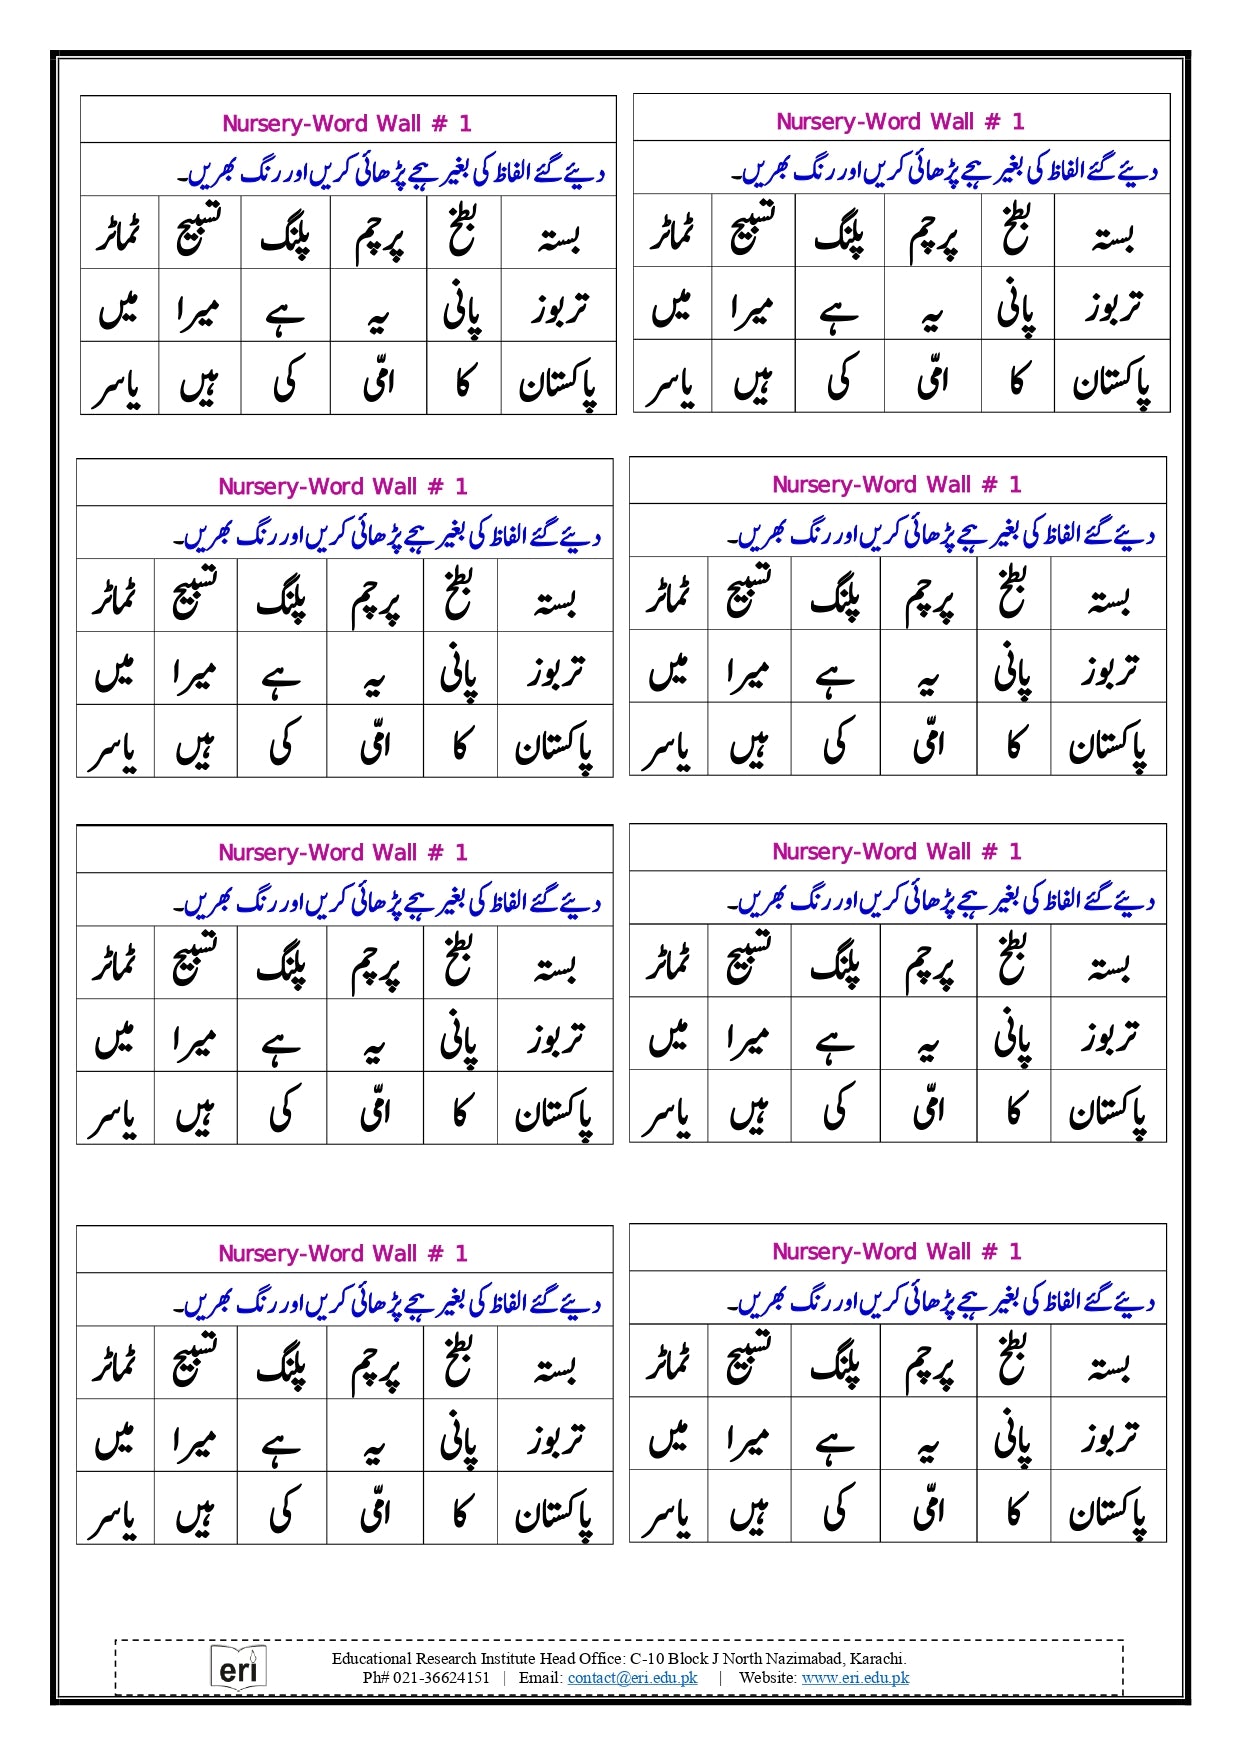 Nursery-Word Wall # 1
دیئے گئے الفاظ کی بغیر ہجے پڑھائی کریں اور رنگ بھریں۔
بستہ بطخ پرچم پلنگ تسبیح ٹماٹر
تربوز پانی یہ ہے میرا میں
پاکستان کا امّی کی ہیں یاسر
Nursery-Word Wall # 1
دیئے گئے الفاظ کی بغیر ہجے پڑھائی کریں اور رنگ بھریں۔
بستہ بطخ پرچم پلنگ تسبیح ٹماٹر
تربوز پانی یہ ہے میرا میں
پاکستان کا امّی کی ہیں یاسر
Nursery-Word Wall # 1
دیئے گئے الفاظ کی بغیر ہجے پڑھائی کریں اور رنگ بھریں۔
بستہ بطخ پرچم پلنگ تسبیح ٹماٹر
تربوز پانی یہ ہے میرا میں
پاکستان کا امّی کی ہیں یاسر
Nursery-Word Wall # 1
دیئے گئے الفاظ کی بغیر ہجے پڑھائی کریں اور رنگ بھریں۔
بستہ بطخ پرچم پلنگ تسبیح ٹماٹر
تربوز پانی یہ ہے میرا میں
پاکستان کا امّی کی ہیں یاسر
Nursery-Word Wall # 1
دیئے گئے الفاظ کی بغیر ہجے پڑھائی کریں اور رنگ بھریں۔
بستہ بطخ پرچم پلنگ تسبیح ٹماٹر
تربوز پانی یہ ہے میرا میں
پاکستان کا امّی کی ہیں یاسر
Nursery-Word Wall # 1
دیئے گئے الفاظ کی بغیر ہجے پڑھائی کریں اور رنگ بھریں۔
بستہ بطخ پرچم پلنگ تسبیح ٹماٹر
تربوز پانی یہ ہے میرا میں
پاکستان کا امّی کی ہیں یاسر
Nursery-Word Wall # 1
دیئے گئے الفاظ کی بغیر ہجے پڑھائی کریں اور رنگ بھریں۔
بستہ بطخ پرچم پلنگ تسبیح ٹماٹر
تربوز پانی یہ ہے میرا میں
پاکستان کا امّی کی ہیں یاسر
Nursery-Word Wall # 1
دیئے گئے الفاظ کی بغیر ہجے پڑھائی کریں اور رنگ بھریں۔
بستہ بطخ پرچم پلنگ تسبیح ٹماٹر
تربوز پانی یہ ہے میرا میں
پاکستان کا امّی کی ہیں یاسر
eri
Educational Research Institute Head Office: C-10 Block J North Nazimabad, Karachi.
Ph# 021-36624151 | Email: contact@eri.edu.pk | Website: www.eri.edu.pk